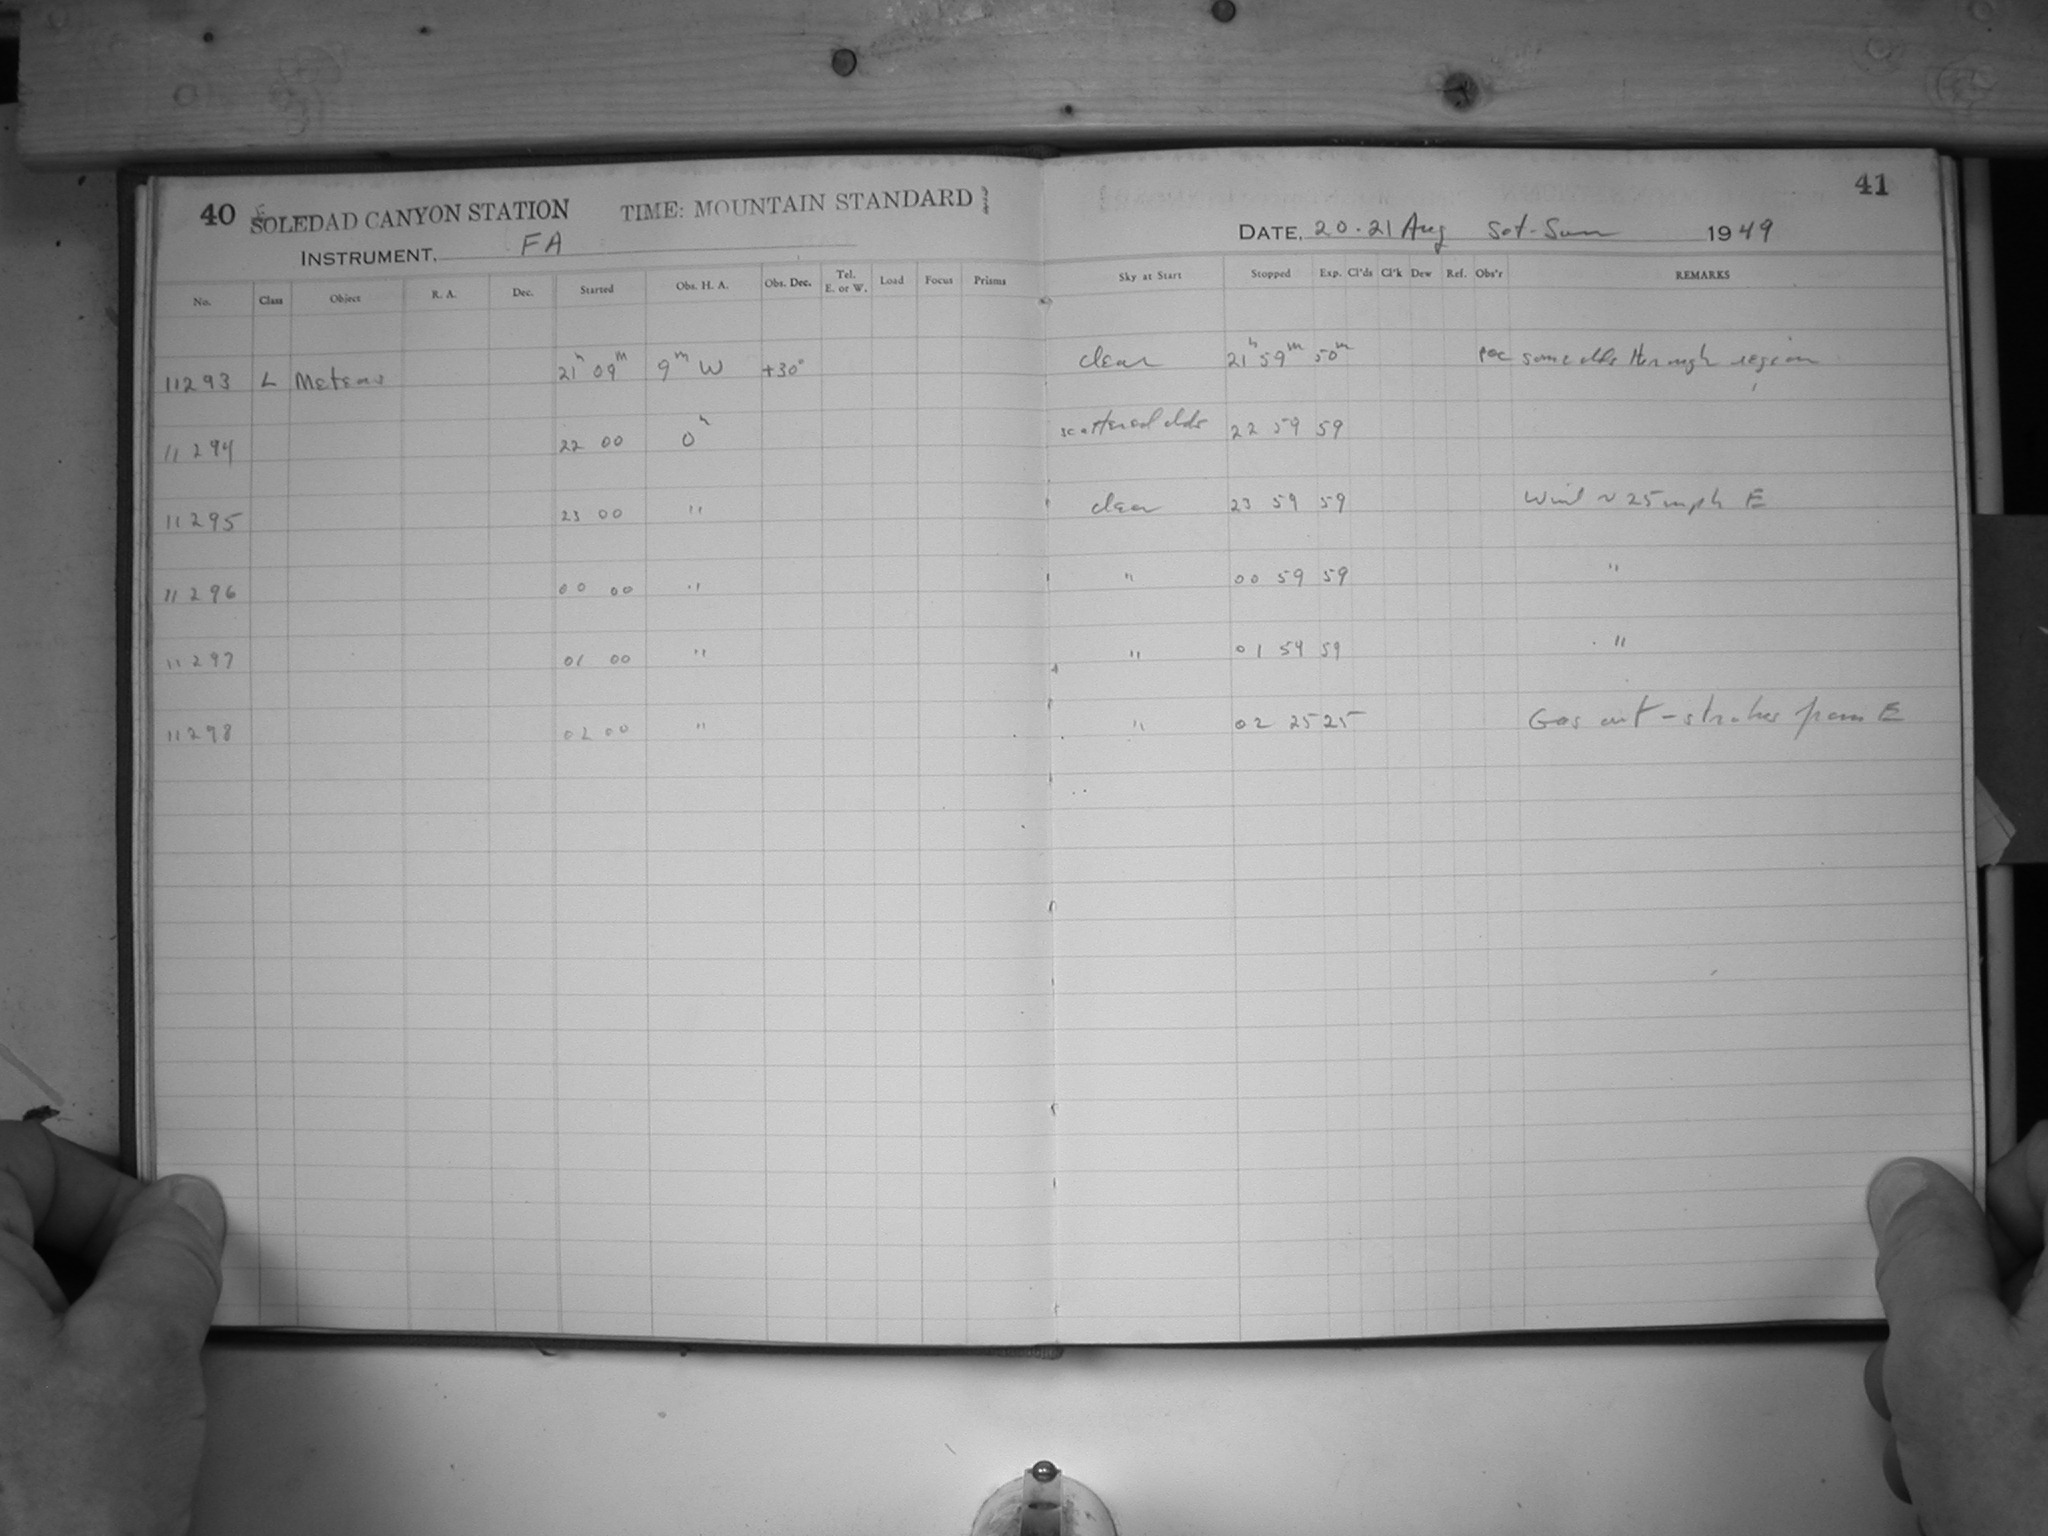 40 SOLEDAD CANYON STATION TIME: MOUNTAIN STANDARD
INSTRUMENT, FA
No. Class Object R. A. Dec. Started Obs. H. A. Obs. Dec. Tel. E. or W. Load Focus Prisms
11293 L Meteors 21h 09m 9m W +30°
11294 22 00 0h
11295 23 00 "
11296 00 00 "
11297 01 00 "
11298 02 00 "
41
DATE, 20-21 Aug Sat-Sun 1949
Sky at Start Stopped Exp. Cl'ds Cl'k Dew Ref. Obs'r REMARKS
clear 21h 59m 50m some clds through region
scattered clds 22 59 59
clear 23 59 59 Wind ~ 25 mph E
" 00 59 59 "
" 01 59 59 "
" 02 25 25 Gas out - strokes from E